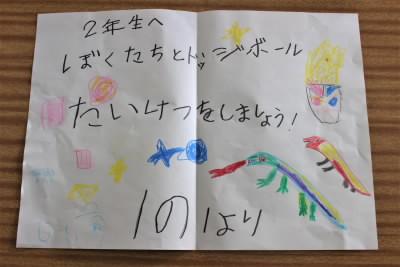 2年生へ
ぼくたちとドッジボール
たいけつをしましょう!
1の1より